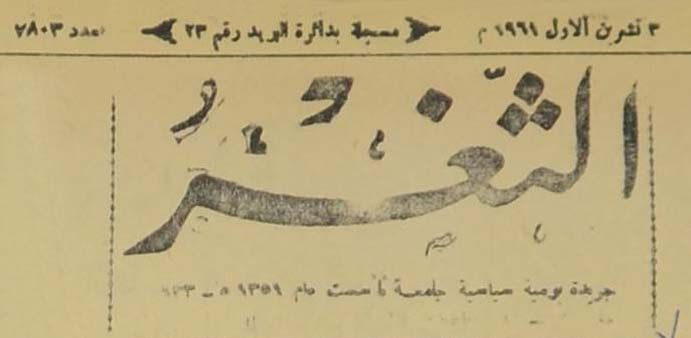 ٣ تشرين الاول ١٩٦١ م مسجلة بدائرة البريد رقم ٢٣ العدد ٧٨٠٣
الثَّغْرُ
جريدة يومية سياسية جامعة تأسست عام ١٣٥١ هـ - ٩٣٣